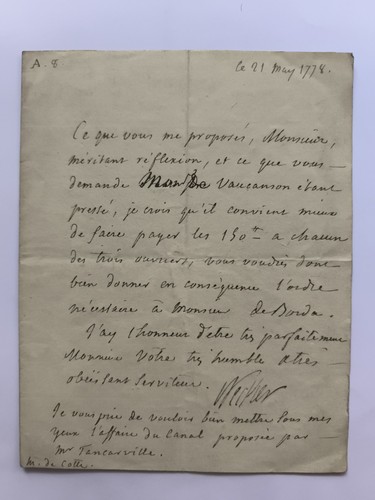 A. 8
ce 21 May 1778.
Ce que vous me proposés, Monsieur,
méritant réflexion, et ce que vous
demande Vaucanson étant
pressé, je crois qu'il convient mieux
de faire payer les 150 a chacun
des trois ouvriers, vous voudrés donc
bien donner en conséquence l'ordre
nécessaire à Monsieur de Borda.
J'ay l'honneur d'etre tres parfaitement
Monsieur Votre tres humble et tres
obéissant Serviteur.
Necker
Je vous prie de vouloir bien mettre sous mes
yeux l'affaire du Canal proposée par
Mr Tancarville.
M. de Cotte.